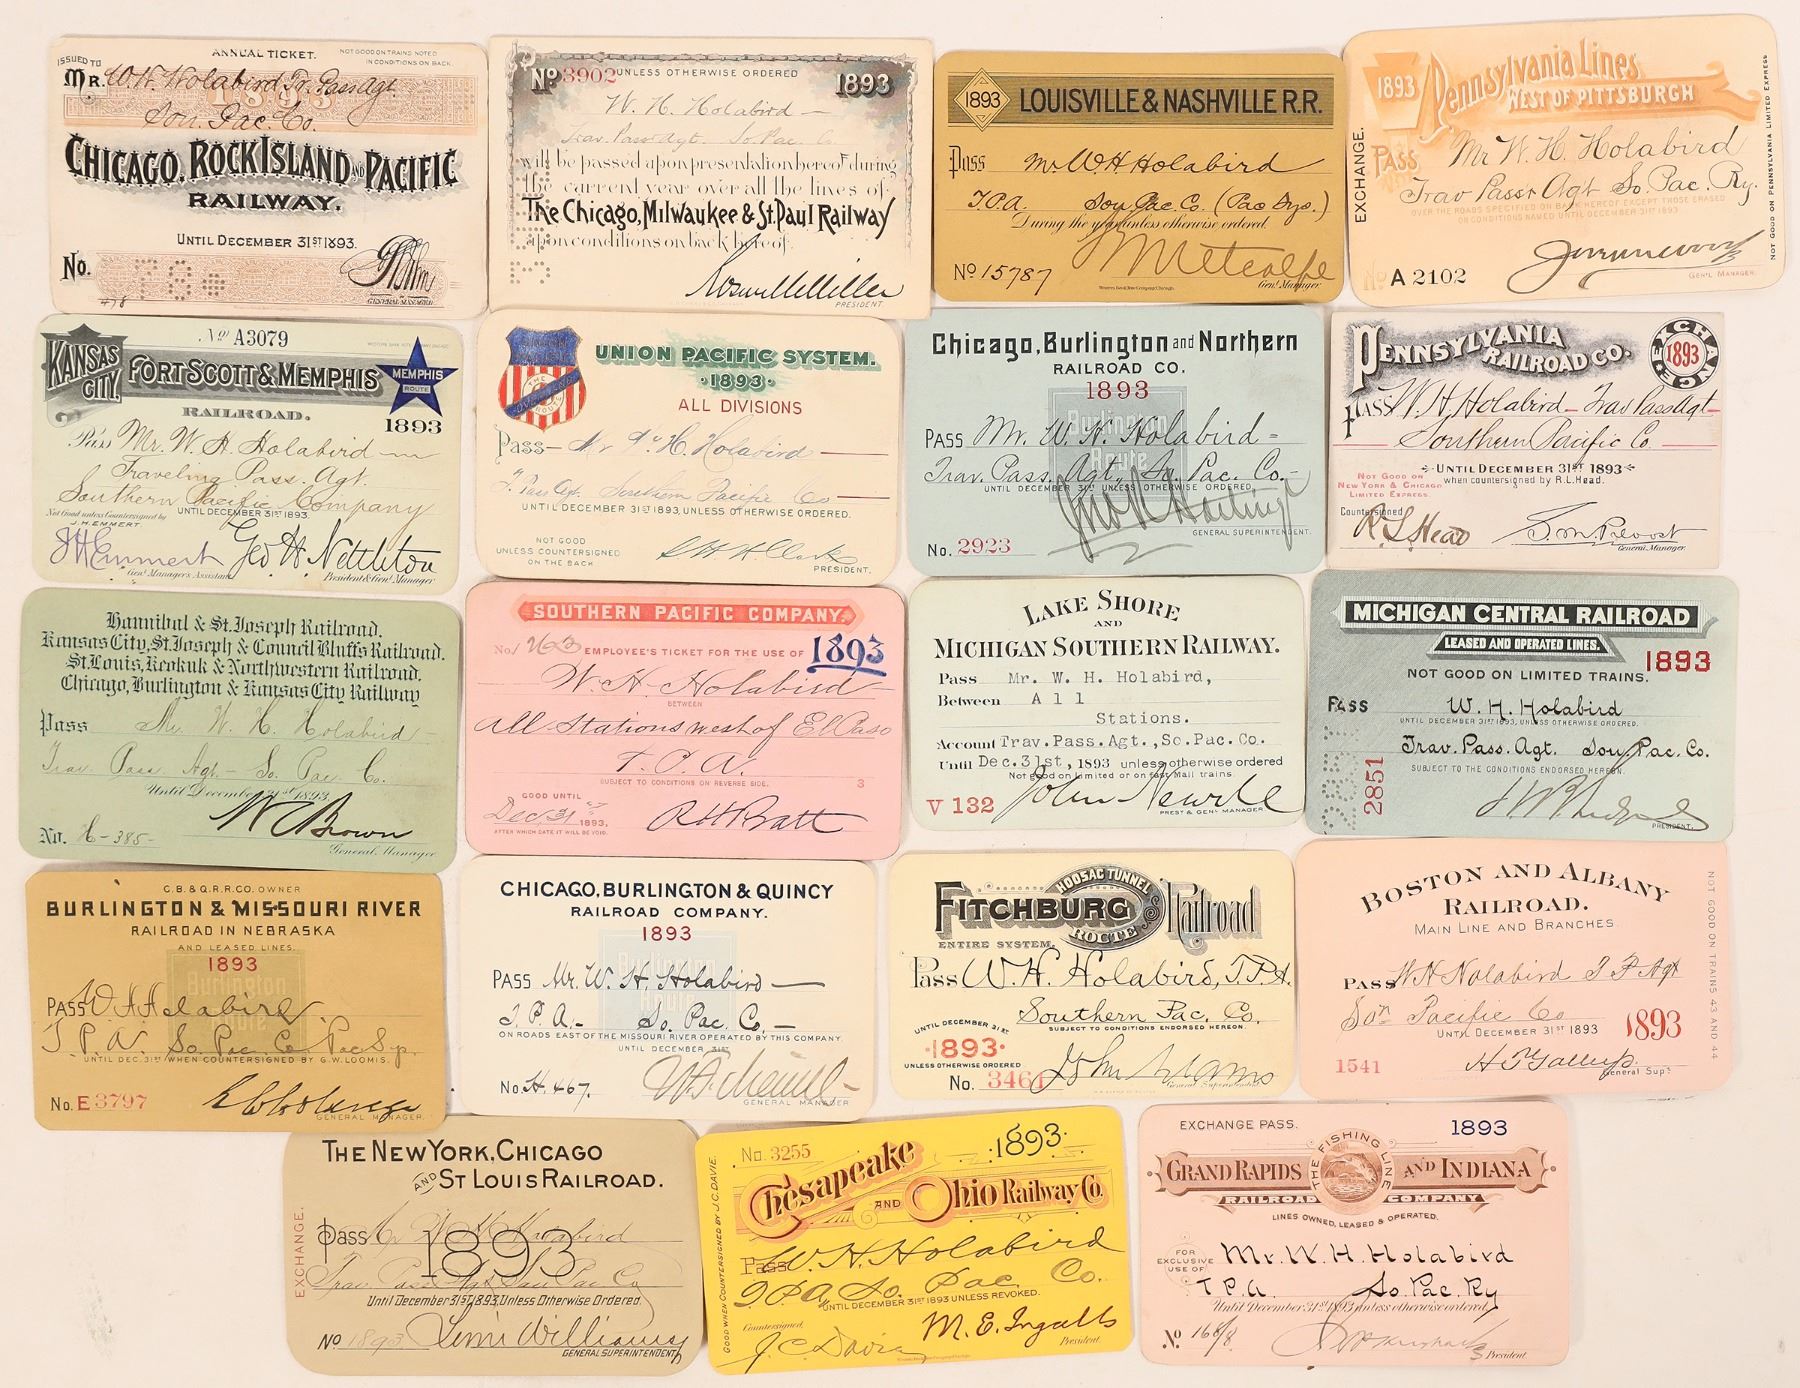 ANNUAL TICKET.
NOT GOOD ON TRAINS NOTED
IN CONDITIONS ON BACK.
ISSUED TO
MR. W.H. Holabird Tr. Pass Agt.
1893
Sou. Pac. Co.
CHICAGO, ROCK ISLAND AND PACIFIC
RAILWAY.
UNTIL DECEMBER 31ST 1893.
No.
GENERAL MANAGER
No 3902 UNLESS OTHERWISE ORDERED 1893
W. H. Holabird
Trav. Pass Agt. So. Pac. Co.
will be passed upon presentation hereof during
the current year over all the lines of
The Chicago, Milwaukee & St. Paul Railway
upon conditions on back hereof.
Roswell Miller
PRESIDENT.
1893 LOUISVILLE & NASHVILLE R.R.
Pass Mr. W.H. Holabird
T.P.A. Sou. Pac. Co. (Pac Sys.)
During the year unless otherwise ordered.
No 15787 Metcalfe
Gen'l Manager.
1893 Pennsylvania Lines
WEST OF PITTSBURGH
EXCHANGE.
PASS Mr W. H. Holabird
Trav Pass'r Agt So. Pac. Ry.
OVER THE ROADS SPECIFIED ON BACK HEREOF EXCEPT THOSE ERASED
OR CONDITIONS NAMED UNTIL DECEMBER 31ST 1893
No A 2102
GEN'L MANAGER.
NOT GOOD ON PENNSYLVANIA LIMITED EXPRESS
No. A3079
KANSAS CITY, FORT SCOTT & MEMPHIS
MEMPHIS ROUTE
RAILROAD. 1893
Pass Mr. W. H. Holabird
Traveling Pass. Agt.
Southern Pacific Company
Not Good unless Countersigned by
J.H. EMMERT UNTIL DECEMBER 31ST 1893.
J H Emmert Geo. H. Nettleton
Gen'l Managers Assistant President & Gen'l Manager
UNION PACIFIC
THE OVERLAND ROUTE
UNION PACIFIC SYSTEM.
·1893·
ALL DIVISIONS
Pass Mr W. H. Holabird
T. Pass Agt. Southern Pacific Co
UNTIL DECEMBER 31ST 1893, UNLESS OTHERWISE ORDERED.
NOT GOOD
UNLESS COUNTERSIGNED
ON THE BACK
S H H Clark
PRESIDENT.
Chicago, Burlington and Northern
RAILROAD CO.
1893
Burlington Route
PASS Mr. W. H. Holabird
Trav. Pass. Agt. So. Pac. Co.
UNTIL DECEMBER 31ST UNLESS OTHERWISE ORDERED.
GENERAL SUPERINTENDENT.
No. 2923
PENNSYLVANIA
RAILROAD CO.
EXCHANGE 1893
PASS W. H. Holabird Trav Pass Agt
Southern Pacific Co
UNTIL DECEMBER 31ST 1893
when countersigned by R.L. Head.
NOT GOOD ON
NEW YORK & CHICAGO
LIMITED EXPRESS.
Countersigned
R L Head S. M. Prevost
General Manager.
Hannibal & St. Joseph Railroad.
Kansas City, St. Joseph & Council Bluffs Railroad.
St. Louis, Keokuk & Northwestern Railroad.
Chicago, Burlington & Kansas City Railway
Pass Mr. W. H. Holabird
Trav. Pass. Agt. So. Pac. Co.
Until December 31st 1893
No. H-385- W C Brown
General Manager
SOUTHERN PACIFIC COMPANY.
No. 263 EMPLOYEE'S TICKET FOR THE USE OF 1893
W. H. Holabird
BETWEEN
All Stations west of El Paso
T. P. A.
SUBJECT TO CONDITIONS ON REVERSE SIDE. 3
GOOD UNTIL
Dec. 31st 1893,
AFTER WHICH DATE IT WILL BE VOID.
R H Pratt
LAKE SHORE
AND
MICHIGAN SOUTHERN RAILWAY.
Pass Mr. W. H. Holabird,
Between All
Stations.
Account Trav. Pass. Agt., So. Pac. Co.
Until Dec. 31st, 1893 unless otherwise ordered
Not good on limited or on fast Mail trains.
V 132 John Newell
PREST & GEN'L MANAGER
MICHIGAN CENTRAL RAILROAD
LEASED AND OPERATED LINES.
1893
NOT GOOD ON LIMITED TRAINS.
PASS W. H. Holabird
UNTIL DECEMBER 31ST 1893, UNLESS OTHERWISE ORDERED.
Trav. Pass. Agt. Sou. Pac. Co.
SUBJECT TO THE CONDITIONS ENDORSED HEREON.
2851
PRESIDENT.
C.B. & Q.R.R. CO. OWNER
BURLINGTON & MISSOURI RIVER
RAILROAD IN NEBRASKA
AND LEASED LINES.
1893
Burlington Route
PASS W. H. Holabird.
T. P. A. So. Pac. Co. Pac Sys.
UNTIL DEC. 31ST WHEN COUNTERSIGNED BY G.W. LOOMIS.
No. E 3797
GENERAL MANAGER.
CHICAGO, BURLINGTON & QUINCY
RAILROAD COMPANY.
1893
Burlington Route
PASS Mr. W. H. Holabird
T. P. A. So. Pac. Co.
ON ROADS EAST OF THE MISSOURI RIVER OPERATED BY THIS COMPANY.
UNTIL DECEMBER 31ST
No. H. 467.
GENERAL MANAGER
FITCHBURG Railroad
HOOSAC TUNNEL ROUTE
ENTIRE SYSTEM.
Pass W. H. Holabird, T.P.A.
Southern Pac. Co.
UNTIL DECEMBER 31ST SUBJECT TO CONDITIONS ENDORSED HEREON.
·1893·
UNLESS OTHERWISE ORDERED
No. 3464 John Adams
General Superintendent
BOSTON AND ALBANY
RAILROAD.
MAIN LINE AND BRANCHES.
PASS W H Holabird T P Agt
Son Pacific Co
UNTIL DECEMBER 31ST 1893 1893
1541
General Supt
NOT GOOD ON TRAINS 43 AND 44
THE NEW YORK, CHICAGO
AND ST LOUIS RAILROAD.
EXCHANGE.
Pass Mr W H Holabird
1893
Trav Pass Agt Sou Pac Co
Until December 31ST 1893, Unless Otherwise Ordered.
No 1893 Lewis Williams
GENERAL SUPERINTENDENT
No. 3255 1893
Chesapeake
AND Ohio Railway Co.
GOOD WHEN COUNTERSIGNED BY J.C. DAVIE.
Pass W. H. Holabird
T P A So Pac Co.
UNTIL DECEMBER 31ST 1893 UNLESS REVOKED.
Countersigned,
J. C. Davie M. E. Ingalls
President.
EXCHANGE PASS. 1893
THE FISHING LINE
GRAND RAPIDS AND INDIANA
RAILROAD COMPANY
LINES OWNED, LEASED & OPERATED.
FOR EXCLUSIVE USE OF Mr. W. H. Holabird
T.P.A. So. Pac. Ry
Until December 31st 1893 unless otherwise ordered,
No 168/8
President.